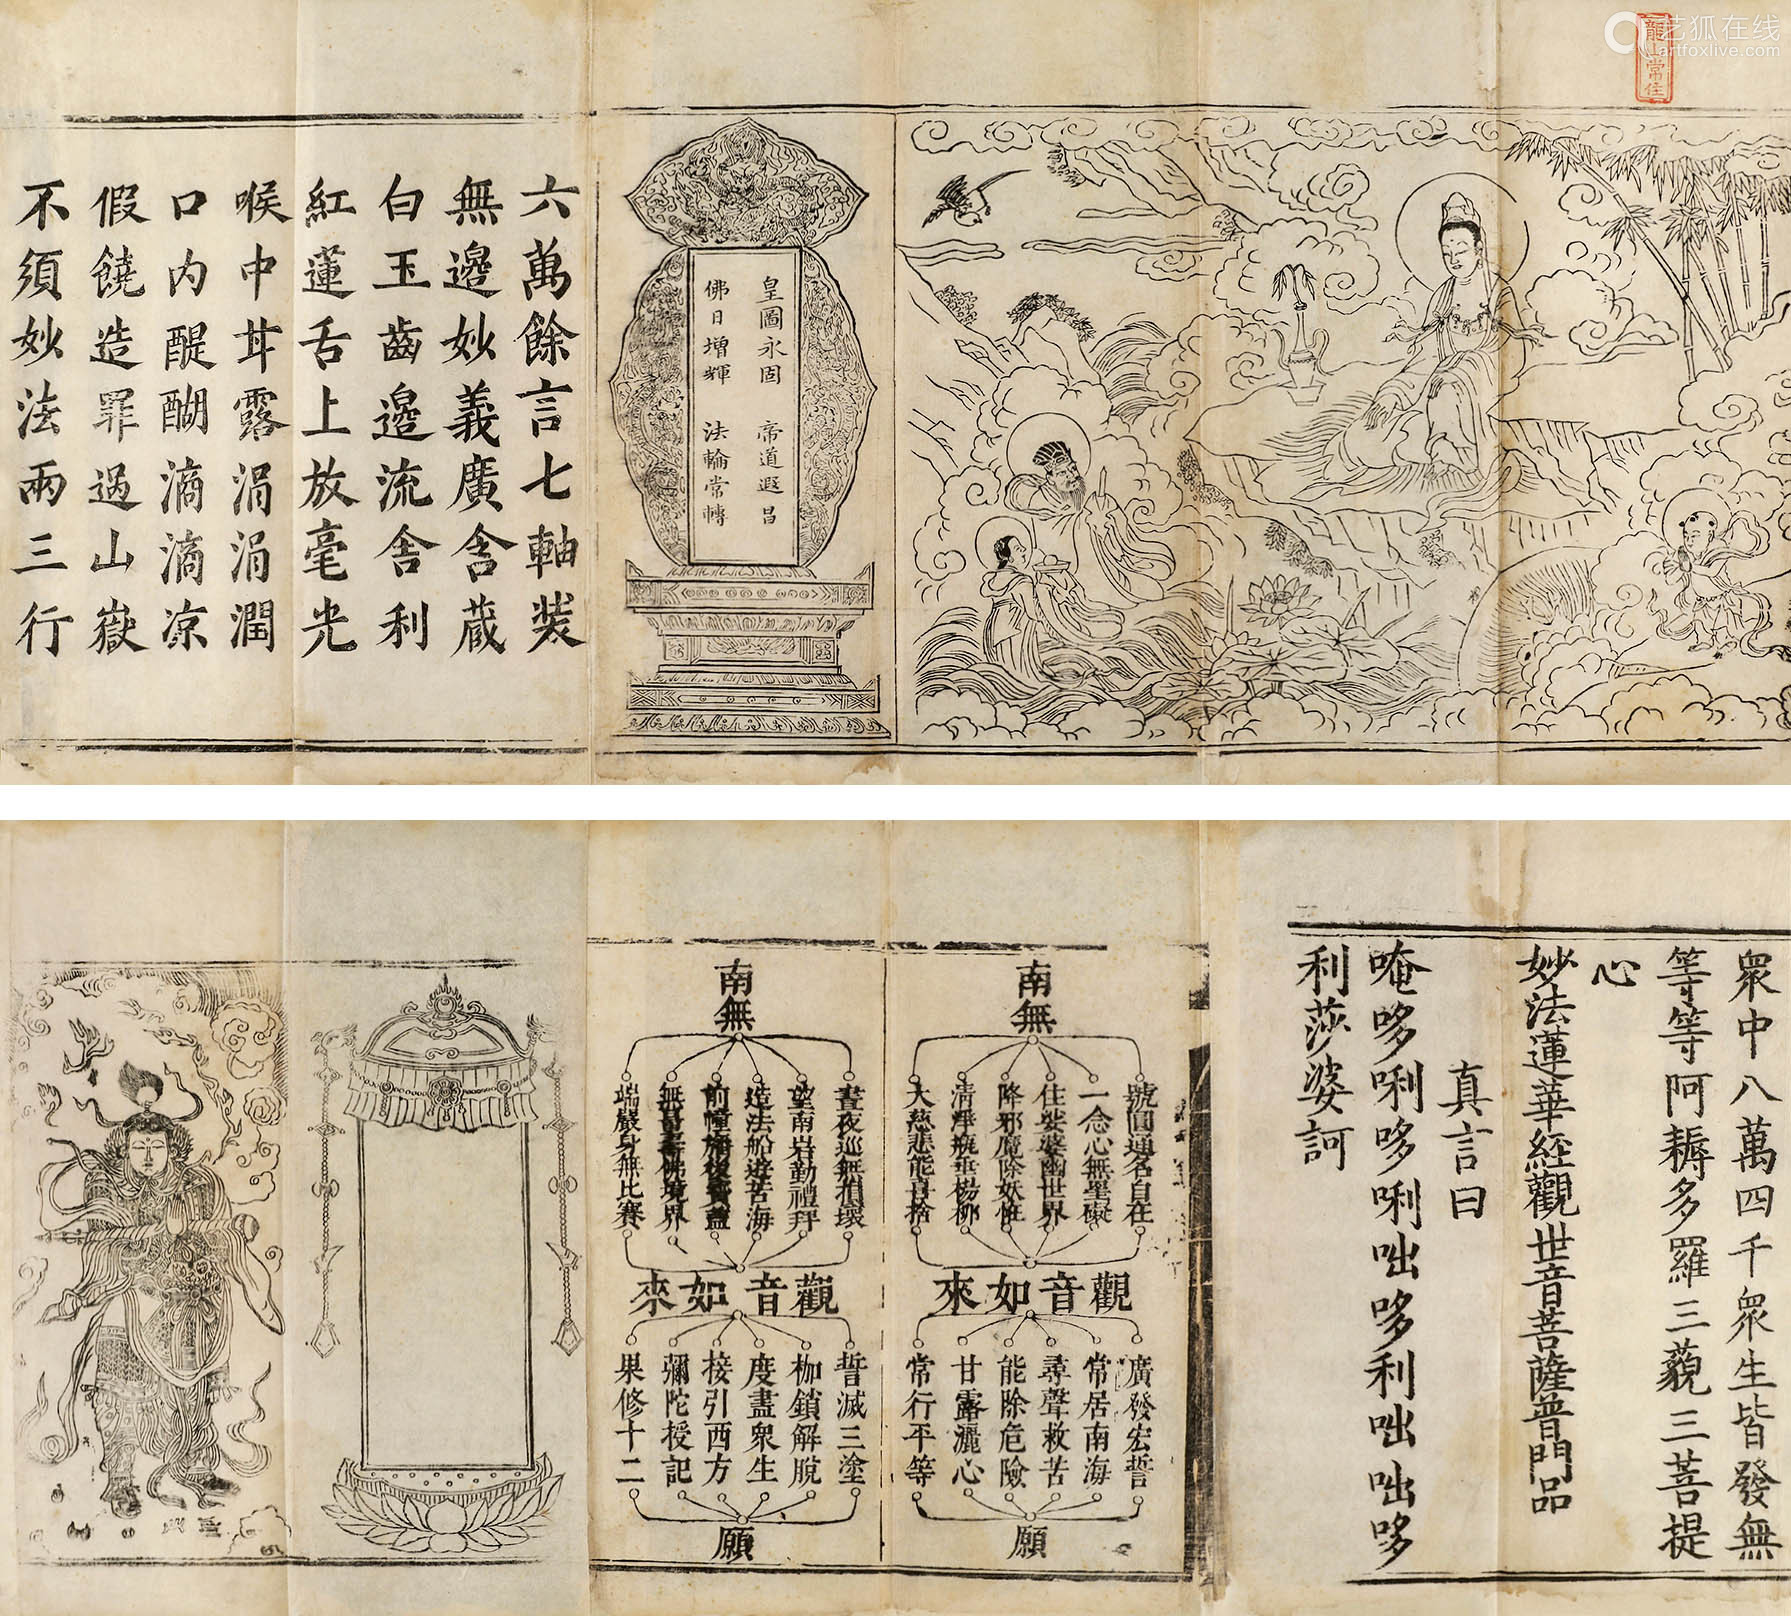 艺狐在线
artfoxlive.com
龍山常住
皇圖永固 帝道遐昌
佛日增輝 法輪常轉
六萬餘言七軸裝
無邊妙義廣含蔵
白玉齒邊流舍利
紅蓮舌上放毫光
喉中甘露涓涓潤
口內醍醐滴滴凉
假饒造罪過山嶽
不須妙法兩三行
眾中八萬四千眾生皆發無
等等阿耨多羅三藐三菩提
心
妙法蓮華經觀世音菩薩普門品
真言曰
唵哆唎哆唎咄哆利咄咄哆
利莎婆訶
南無
號圓通名自在
一念心無罣礙
住娑婆幽世界
降邪魔除妖怪
清淨瓶垂楊柳
大慈悲能喜捨
觀音如來
廣發宏誓
常居南海
尋聲救苦
能除危險
甘露灑心
常行平等
願
南無
晝夜巡無損壞
望南岩勤禮拜
造法船遊苦海
前幢旛後寶蓋
無量壽佛境界
端嚴身無比賽
觀音如來
誓滅三塗
枷鎖解脫
度盡眾生
接引西方
彌陀授記
果修十二
願